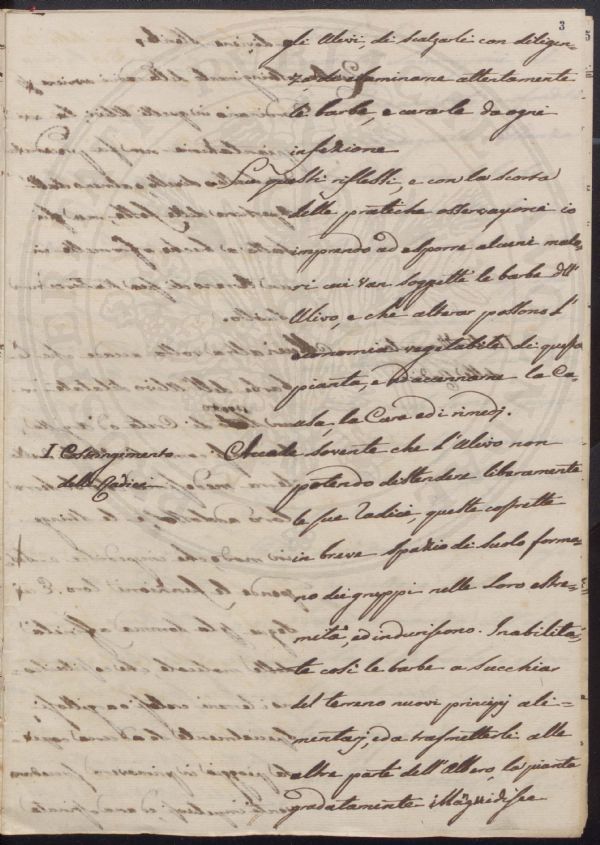 3
gli Ulivi, di scalzarli con diligen=
za ed esaminarne attentamente
le barbe, e curarle da ogni
infezione
Su questi riflessi, e con la scorta
delle pratiche osservazioni io
imprendo ad esporre alcuni malo=
ri cui van soggetti le barbe dell'
Ulivo, e che alterar possono l'
economia vegetabile di questa
pianta, e ad accennarne la Ca=
usa, la Cura ed i rimedj.
I. Costringimento
delle Radici
Accade sovente che l'Ulivo non
potendo distendere liberamente
le sue radici, queste costrette
in breve spazio di suolo forma=
no dei gruppi nelle loro estre=
mità, ed induriscono. Inabilita=
te così le barbe a succhiar
del terreno nuovi principj ali=
mentarj, ed a trasmetterli alle
altre parte dell'Albero, la pianta
gradatamente illanguidisce